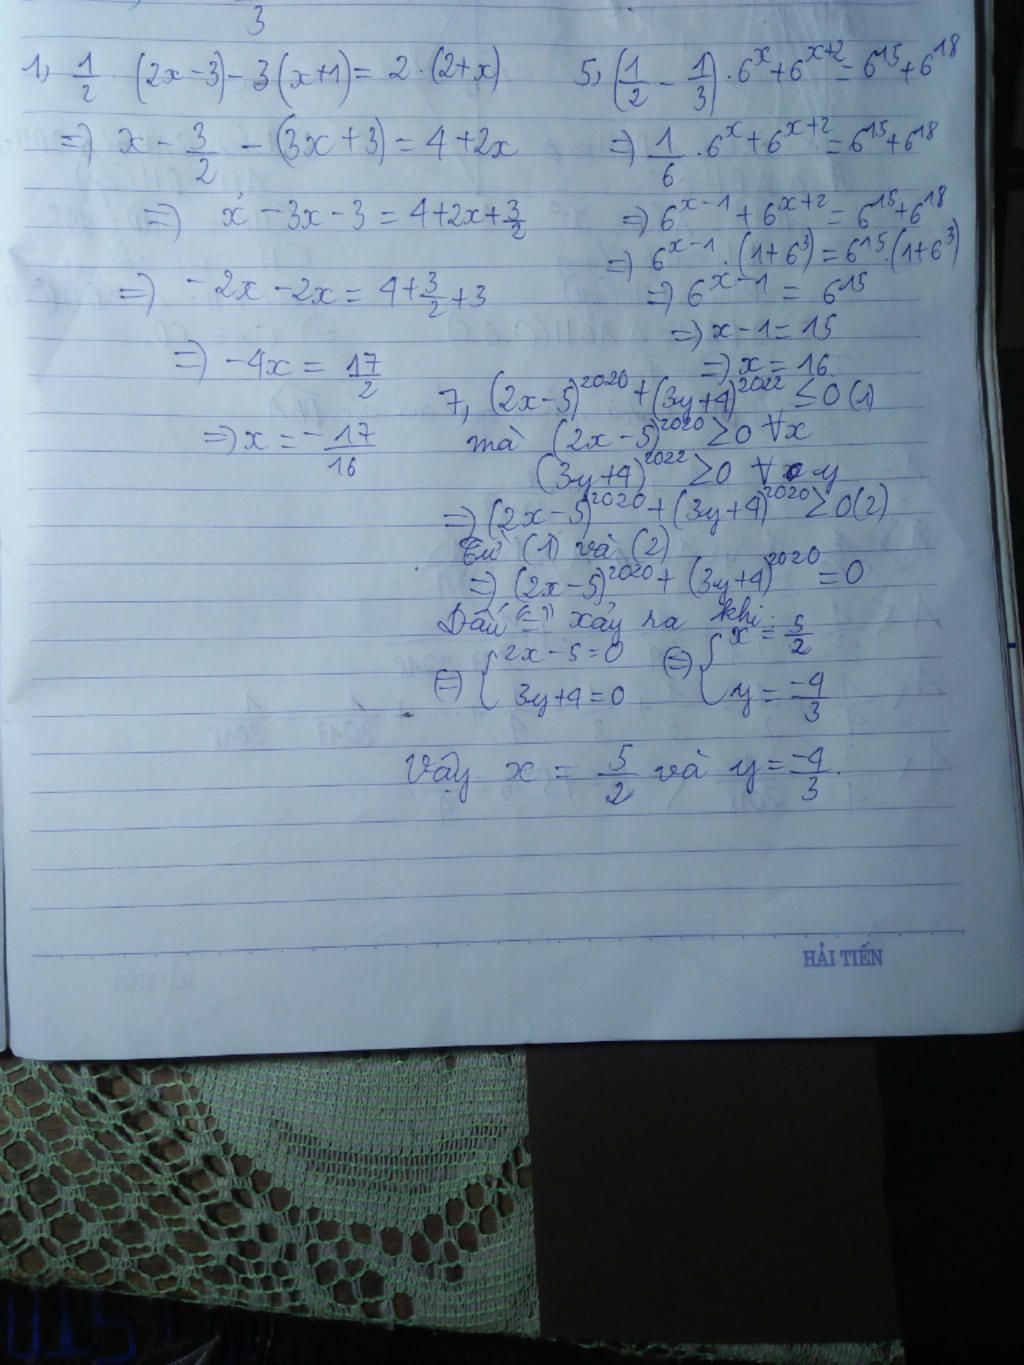 3
1, 1/2 (2x-3)-3(x+1)= 2.(2+x)
=) x - 3/2 - (3x+3) = 4+2x
=) x -3x-3 = 4+2x+3/2
=) -2x-2x = 4+3/2+3
=) -4x = 17/2
=) x = -17/16
5, (1/2 - 1/3).6^x+6^(x+2)=6^15+6^18
=) 1/6 .6^x+6^(x+2)=6^15+6^18
=) 6^(x-1)+6^(x+2)=6^15+6^18
=) 6^(x-1).(1+6^3)=6^15.(1+6^3)
=) 6^(x-1) = 6^15
=) x-1=15
=) x=16.
7, (2x-5)^2020+(3y+4)^2022 ≤0 (1)
mà (2x-5)^2020 ≥0 ∀x
(3y+4)^2022 ≥0 ∀ y
=) (2x-5)^2020+(3y+4)^2020 ≥0(2)
Từ (1) và (2)
=) (2x-5)^2020+(3y+4)^2020 =0
Dấu "=" xảy ra khi:
(=) { 2x-5=0 (=) { x = 5/2
3y+4=0 y = -4/3
Vậy x = 5/2 và y = -4/3.
HẢI TIẾN